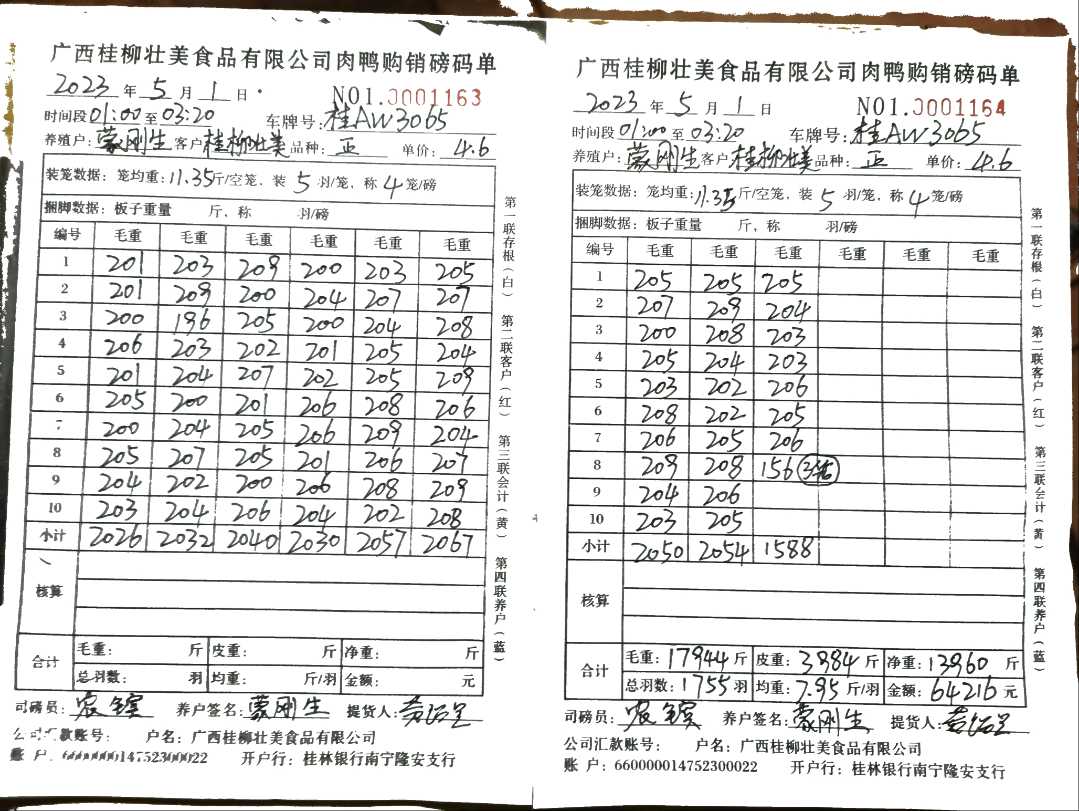 广西桂柳壮美食品有限公司肉鸭购销磅码单
2023 年 5 月 1 日
NO1.0001163
时间段 01:00 至 03:20 车牌号: 桂AW3065
养殖户: 蒙刚生 客户 桂柳壮美 品种: 正 单价: 4.6
装笼数据: 笼均重: 11.35 斤/空笼, 装 5 羽/笼, 称 4 笼/磅
捆脚数据: 板子重量 斤, 称 羽/磅
编号 毛重 毛重 毛重 毛重 毛重 毛重
1 201 203 209 200 203 205
2 201 209 200 204 207 207
3 200 196 205 200 204 208
4 206 203 202 201 205 204
5 201 204 207 202 205 209
6 205 200 201 206 208 206
7 200 204 205 206 209 204
8 205 207 205 201 206 207
9 204 202 200 206 208 209
10 203 204 206 204 202 208
小计 2026 2032 2040 2030 2057 2067
核算
合计 毛重: 斤 皮重: 斤 净重: 斤
总羽数: 羽 均重: 斤/羽 金额: 元
司磅员: 养户签名: 蒙刚生 提货人:
公司汇款账号: 户名: 广西桂柳壮美食品有限公司
账 户: 660000014752300022 开户行: 桂林银行南宁隆安支行
第一联存根(白) 第二联客户(红) 第三联会计(黄) 第四联养户(蓝)
广西桂柳壮美食品有限公司肉鸭购销磅码单
2023 年 5 月 1 日
NO1.0001164
时间段 01:00 至 03:20 车牌号: 桂AW3065
养殖户: 蒙刚生 客户 桂柳壮美 品种: 正 单价: 4.6
装笼数据: 笼均重: 11.35 斤/空笼, 装 5 羽/笼, 称 4 笼/磅
捆脚数据: 板子重量 斤, 称 羽/磅
编号 毛重 毛重 毛重 毛重 毛重 毛重
1 205 205 205
2 207 209 204
3 200 208 203
4 205 204 203
5 203 202 206
6 208 202 205
7 206 205 206
8 209 208 156
9 204 206
10 203 205
小计 2050 2054 1588
核算
合计 毛重: 17944 斤 皮重: 3984 斤 净重: 13960 斤
总羽数: 1755 羽 均重: 7.95 斤/羽 金额: 64216 元
司磅员: 养户签名: 蒙刚生 提货人:
公司汇款账号: 户名: 广西桂柳壮美食品有限公司
账 户: 660000014752300022 开户行: 桂林银行南宁隆安支行
第一联存根(白) 第二联客户(红) 第三联会计(黄) 第四联养户(蓝)